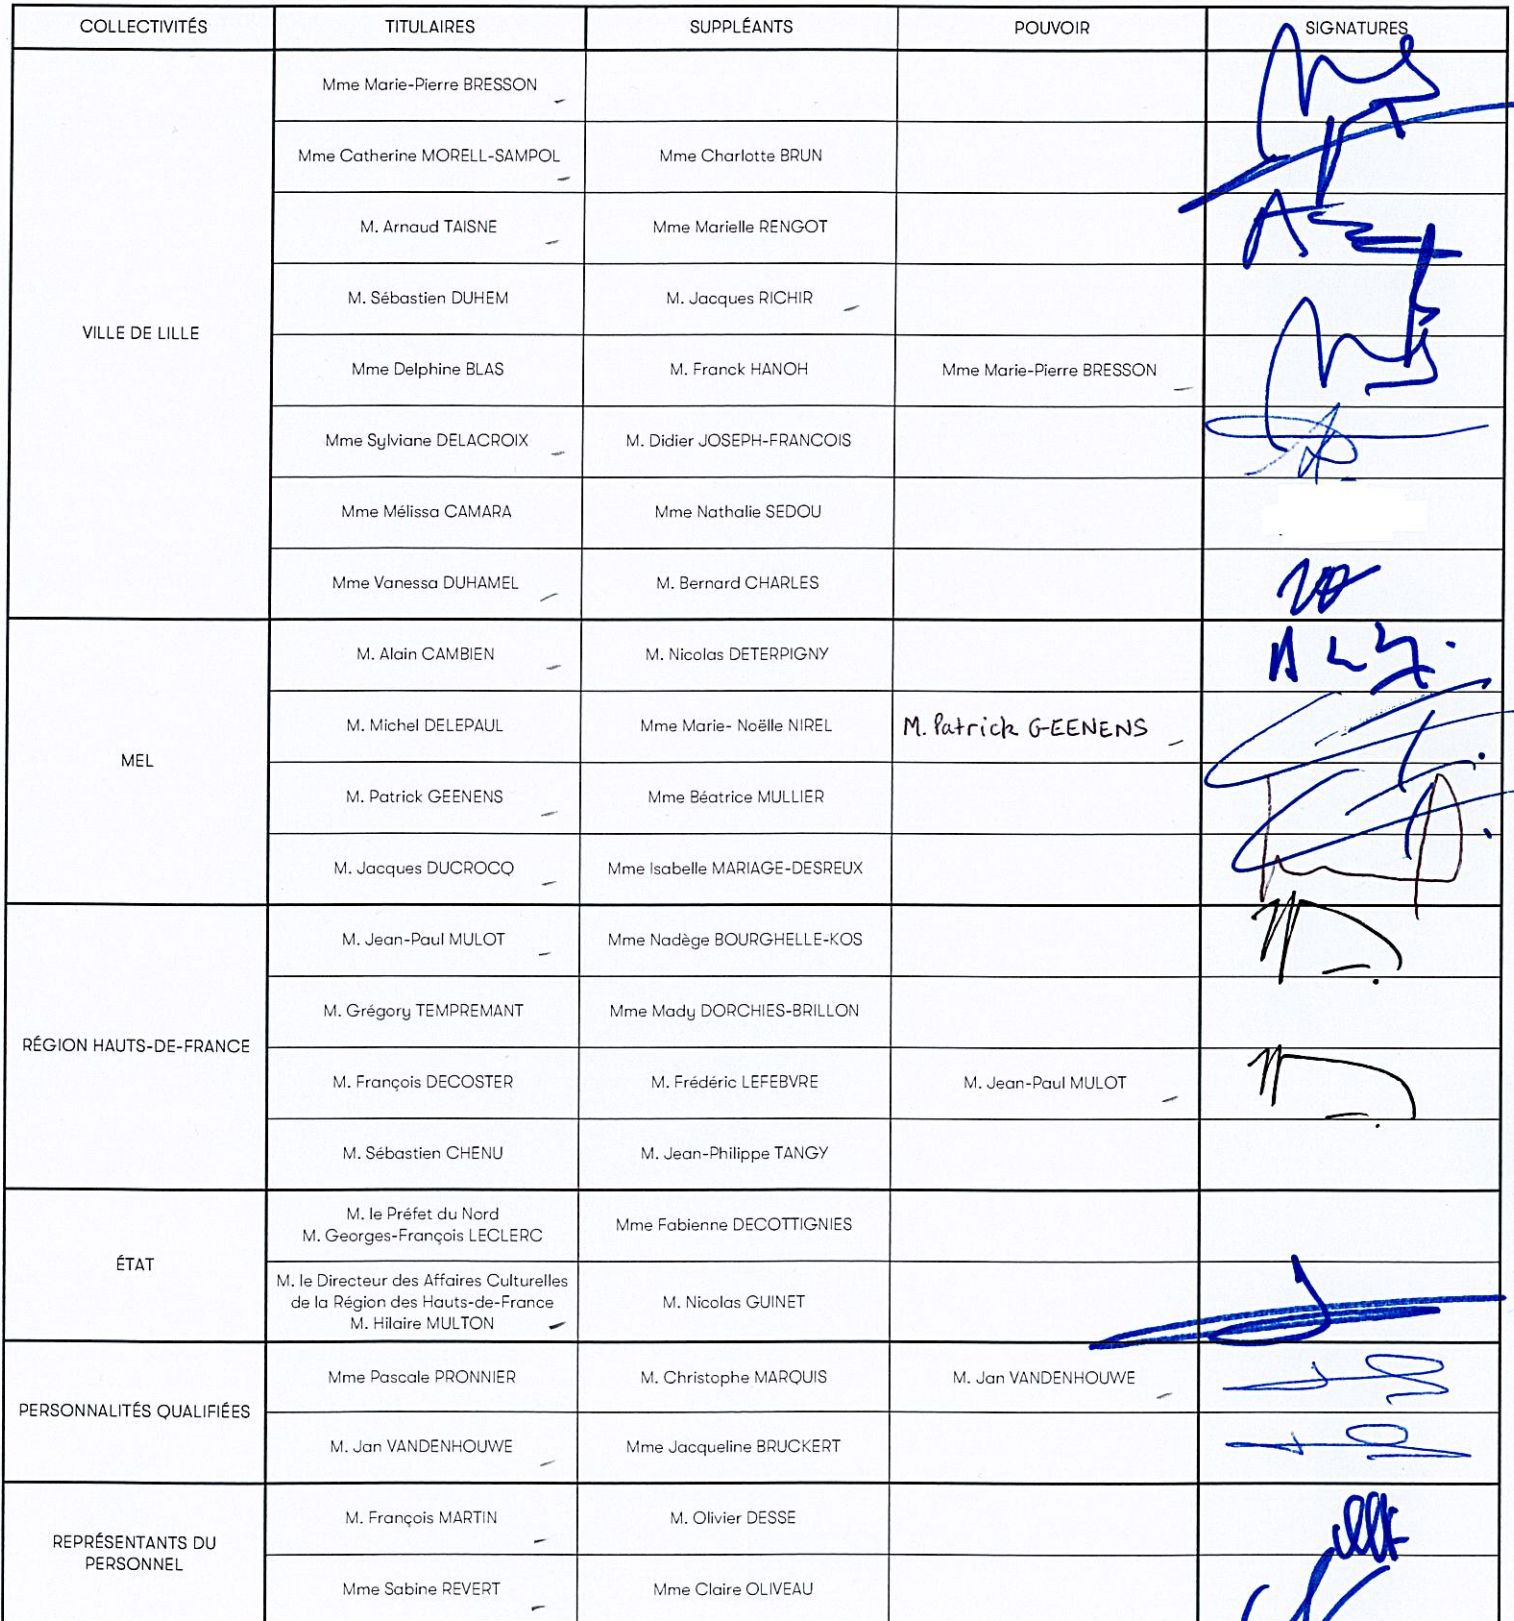 COLLECTIVITÉS TITULAIRES SUPPLÉANTS POUVOIR SIGNATURES
VILLE DE LILLE
Mme Marie-Pierre BRESSON
Mme Catherine MORELL-SAMPOL Mme Charlotte BRUN
M. Arnaud TAISNE Mme Marielle RENGOT
M. Sébastien DUHEM M. Jacques RICHIR
Mme Delphine BLAS M. Franck HANOH Mme Marie-Pierre BRESSON
Mme Sylviane DELACROIX M. Didier JOSEPH-FRANCOIS
Mme Mélissa CAMARA Mme Nathalie SEDOU
Mme Vanessa DUHAMEL M. Bernard CHARLES
MEL
M. Alain CAMBIEN M. Nicolas DETERPIGNY
M. Michel DELEPAUL Mme Marie- Noëlle NIREL M. Patrick GEENENS
M. Patrick GEENENS Mme Béatrice MULLIER
M. Jacques DUCROCQ Mme Isabelle MARIAGE-DESREUX
RÉGION HAUTS-DE-FRANCE
M. Jean-Paul MULOT Mme Nadège BOURGHELLE-KOS
M. Grégory TEMPREMANT Mme Mady DORCHIES-BRILLON
M. François DECOSTER M. Frédéric LEFEBVRE M. Jean-Paul MULOT
M. Sébastien CHENU M. Jean-Philippe TANGY
ÉTAT
M. le Préfet du Nord
M. Georges-François LECLERC
Mme Fabienne DECOTTIGNIES
M. le Directeur des Affaires Culturelles
de la Région des Hauts-de-France
M. Hilaire MULTON
M. Nicolas GUINET
PERSONNALITÉS QUALIFIÉES
Mme Pascale PRONNIER M. Christophe MARQUIS M. Jan VANDENHOUWE
M. Jan VANDENHOUWE Mme Jacqueline BRUCKERT
REPRÉSENTANTS DU
PERSONNEL
M. François MARTIN M. Olivier DESSE
Mme Sabine REVERT Mme Claire OLIVEAU